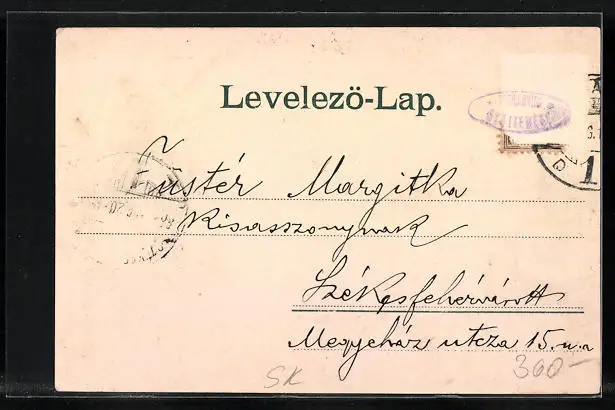 Levelezö-Lap.
Fustér Margitka
Kisasszonynak
Székesfehérvárott
Megyeház utcza 15.
SK
300-
1